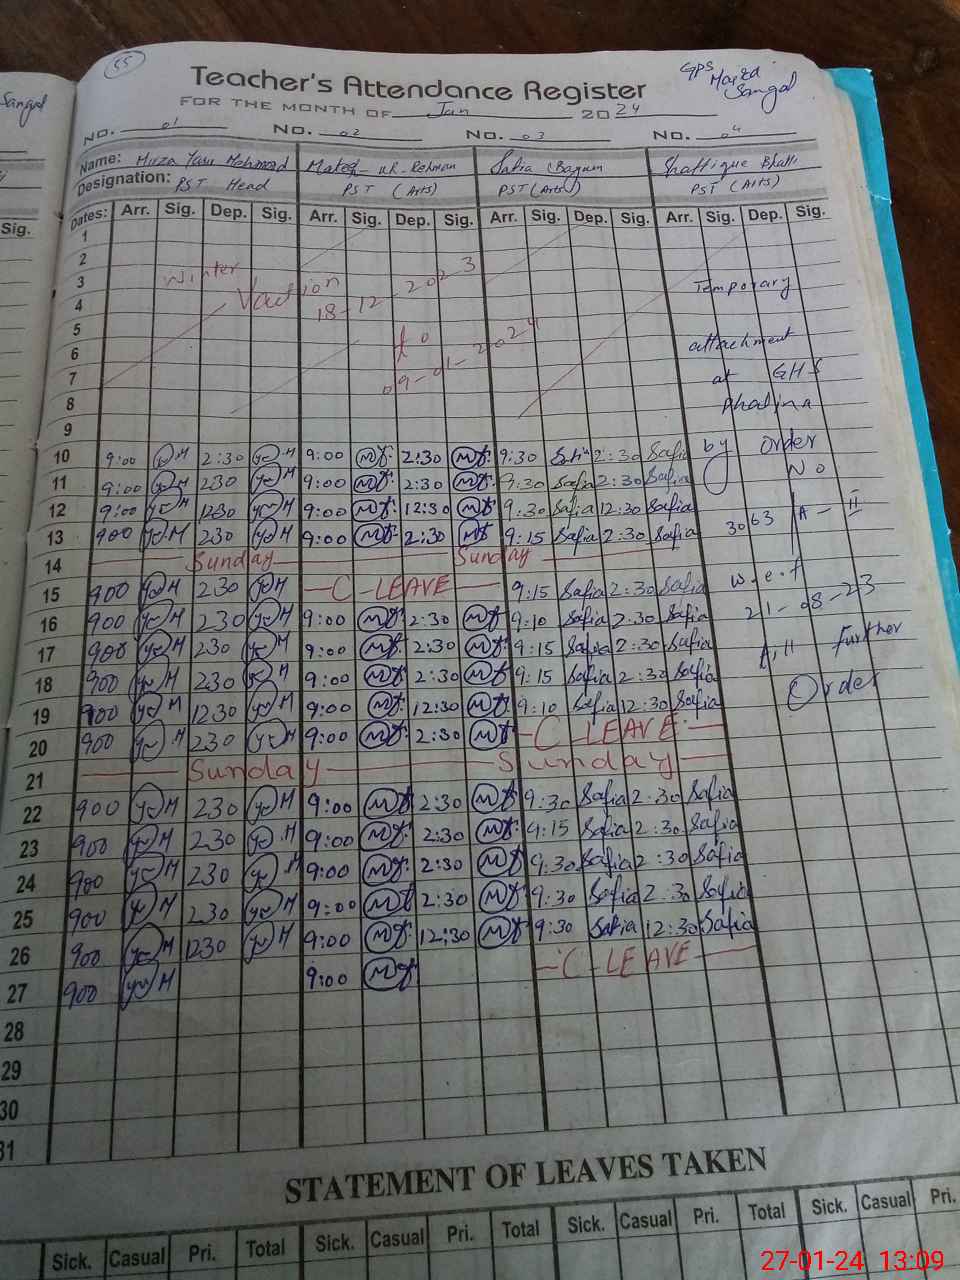 55
Teacher's Attendance Register
GPS Maira Sangal
FOR THE MONTH OF Jan 2024
NO. 01 NO. 02 NO. 03 NO. 04
Name: Mirza Mehmood ur Rehman Safia Begum Shaffique Bhatti
Designation: PST Head PST (Arts) PST (Arts) PST (Arts)
Dates: Arr. Sig. Dep. Sig. Arr. Sig. Dep. Sig. Arr. Sig. Dep. Sig. Arr. Sig. Dep. Sig.
1
2
3 Winter Temporary
4 Vaction 18-12-2023
5
6 to attachment
7 09-01-2024 at GHS
8
9
10 9:00 2:30 9:00 2:30 9:30 Safia 2:30 Safia by order
11 9:00 230 9:00 2:30 9:30 Safia 2:30 Safia No
12 9:00 1230 9:00 12:30 9:30 Safia 12:30 Safia
13 900 230 9:00 2:30 9:15 Safia 2:30 Safia 3063/A-II
14 Sunday Sunday
15 900 230 C-LEAVE 9:15 Safia 2:30 Safia w.e.f
16 900 230 9:00 2:30 9:10 Safia 2:30 Safia 21-08-23
17 900 230 9:00 2:30 9:15 Safia 2:30 Safia further
18 900 230 9:00 2:30 9:15 Safia 2:30 Safia Order
19 900 1230 9:00 12:30 9:10 Safia 12:30 Safia
20 900 230 9:00 2:30 C-LEAVE
21 Sunday Sunday
22 900 230 9:00 2:30 9:30 Safia 2:30 Safia
23 900 230 9:00 2:30 9:15 Safia 2:30 Safia
24 900 230 9:00 2:30 9:30 Safia 2:30 Safia
25 900 230 9:00 2:30 9:30 Safia 2:30 Safia
26 900 1230 9:00 12:30 9:30 Safia 12:30 Safia
27 900 9:00 C-LEAVE
28
29
30
31
STATEMENT OF LEAVES TAKEN
Sick. Casual Pri. Total Sick. Casual Pri. Total Sick. Casual Pri. Total Sick. Casual Pri.
27-01-24 13:09
Sangal
Sig.